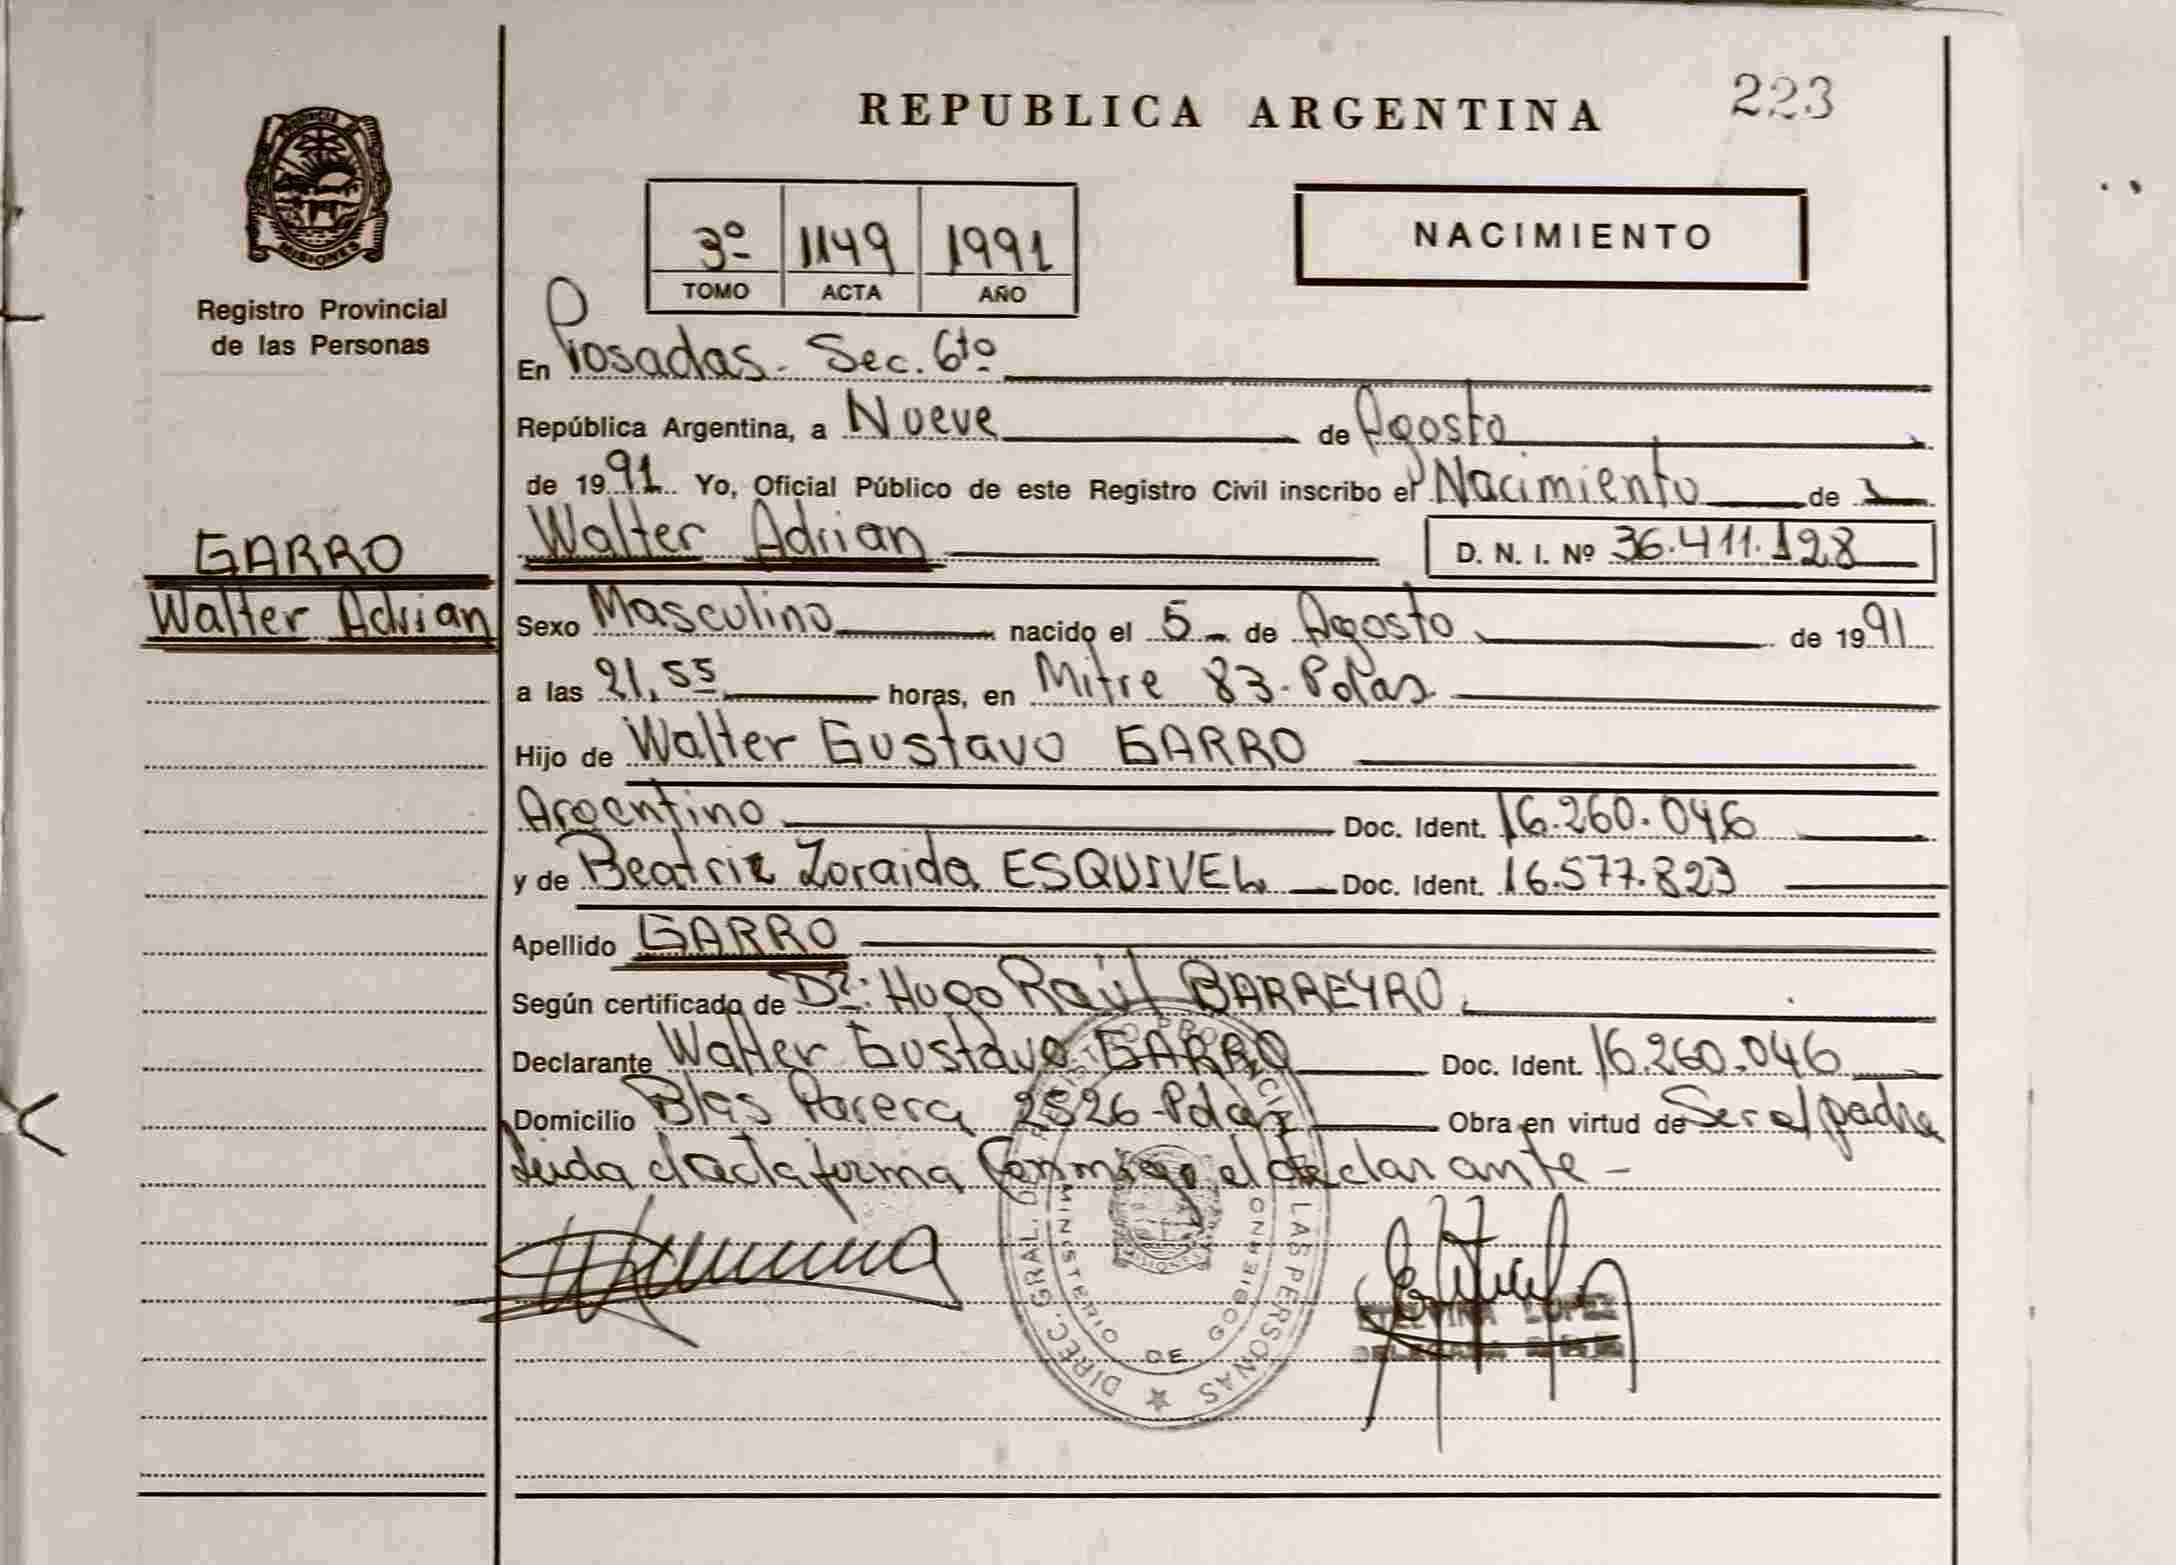 REPUBLICA ARGENTINA
223
MISIONES
Registro Provincial
de las Personas
3º 1149 1991
TOMO ACTA AÑO
NACIMIENTO
En Posadas - Sec. 6to
República Argentina, a Nueve de Agosto
de 1991 Yo, Oficial Público de este Registro Civil inscribo el Nacimiento de
Walter Adrian D. N. I. Nº 36.411.128
GARRO
Walter Adrian
Sexo Masculino nacido el 5 de Agosto de 1991
a las 21,55 horas, en Mitre 83 - Pdas
Hijo de Walter Gustavo GARRO
Argentino Doc. Ident. 16.260.046
y de Beatriz Zoraida ESQUIVEL Doc. Ident. 16.577.823
Apellido GARRO
Según certificado de Dr: Hugo Raúl BARREYRO
Declarante Walter Gustavo GARRO Doc. Ident. 16.260.046
Domicilio Blas Parera 2526 - Pdas Obra en virtud de Ser el padre
Leida el acta firma Conmigo el declarante -
DIREC. GRAL. DE REGISTRO PROVINCIAL DE LAS PERSONAS
MINISTERIO DE GOBIERNO
MISIONES
ETELVINA LOPEZ
DELEGADA